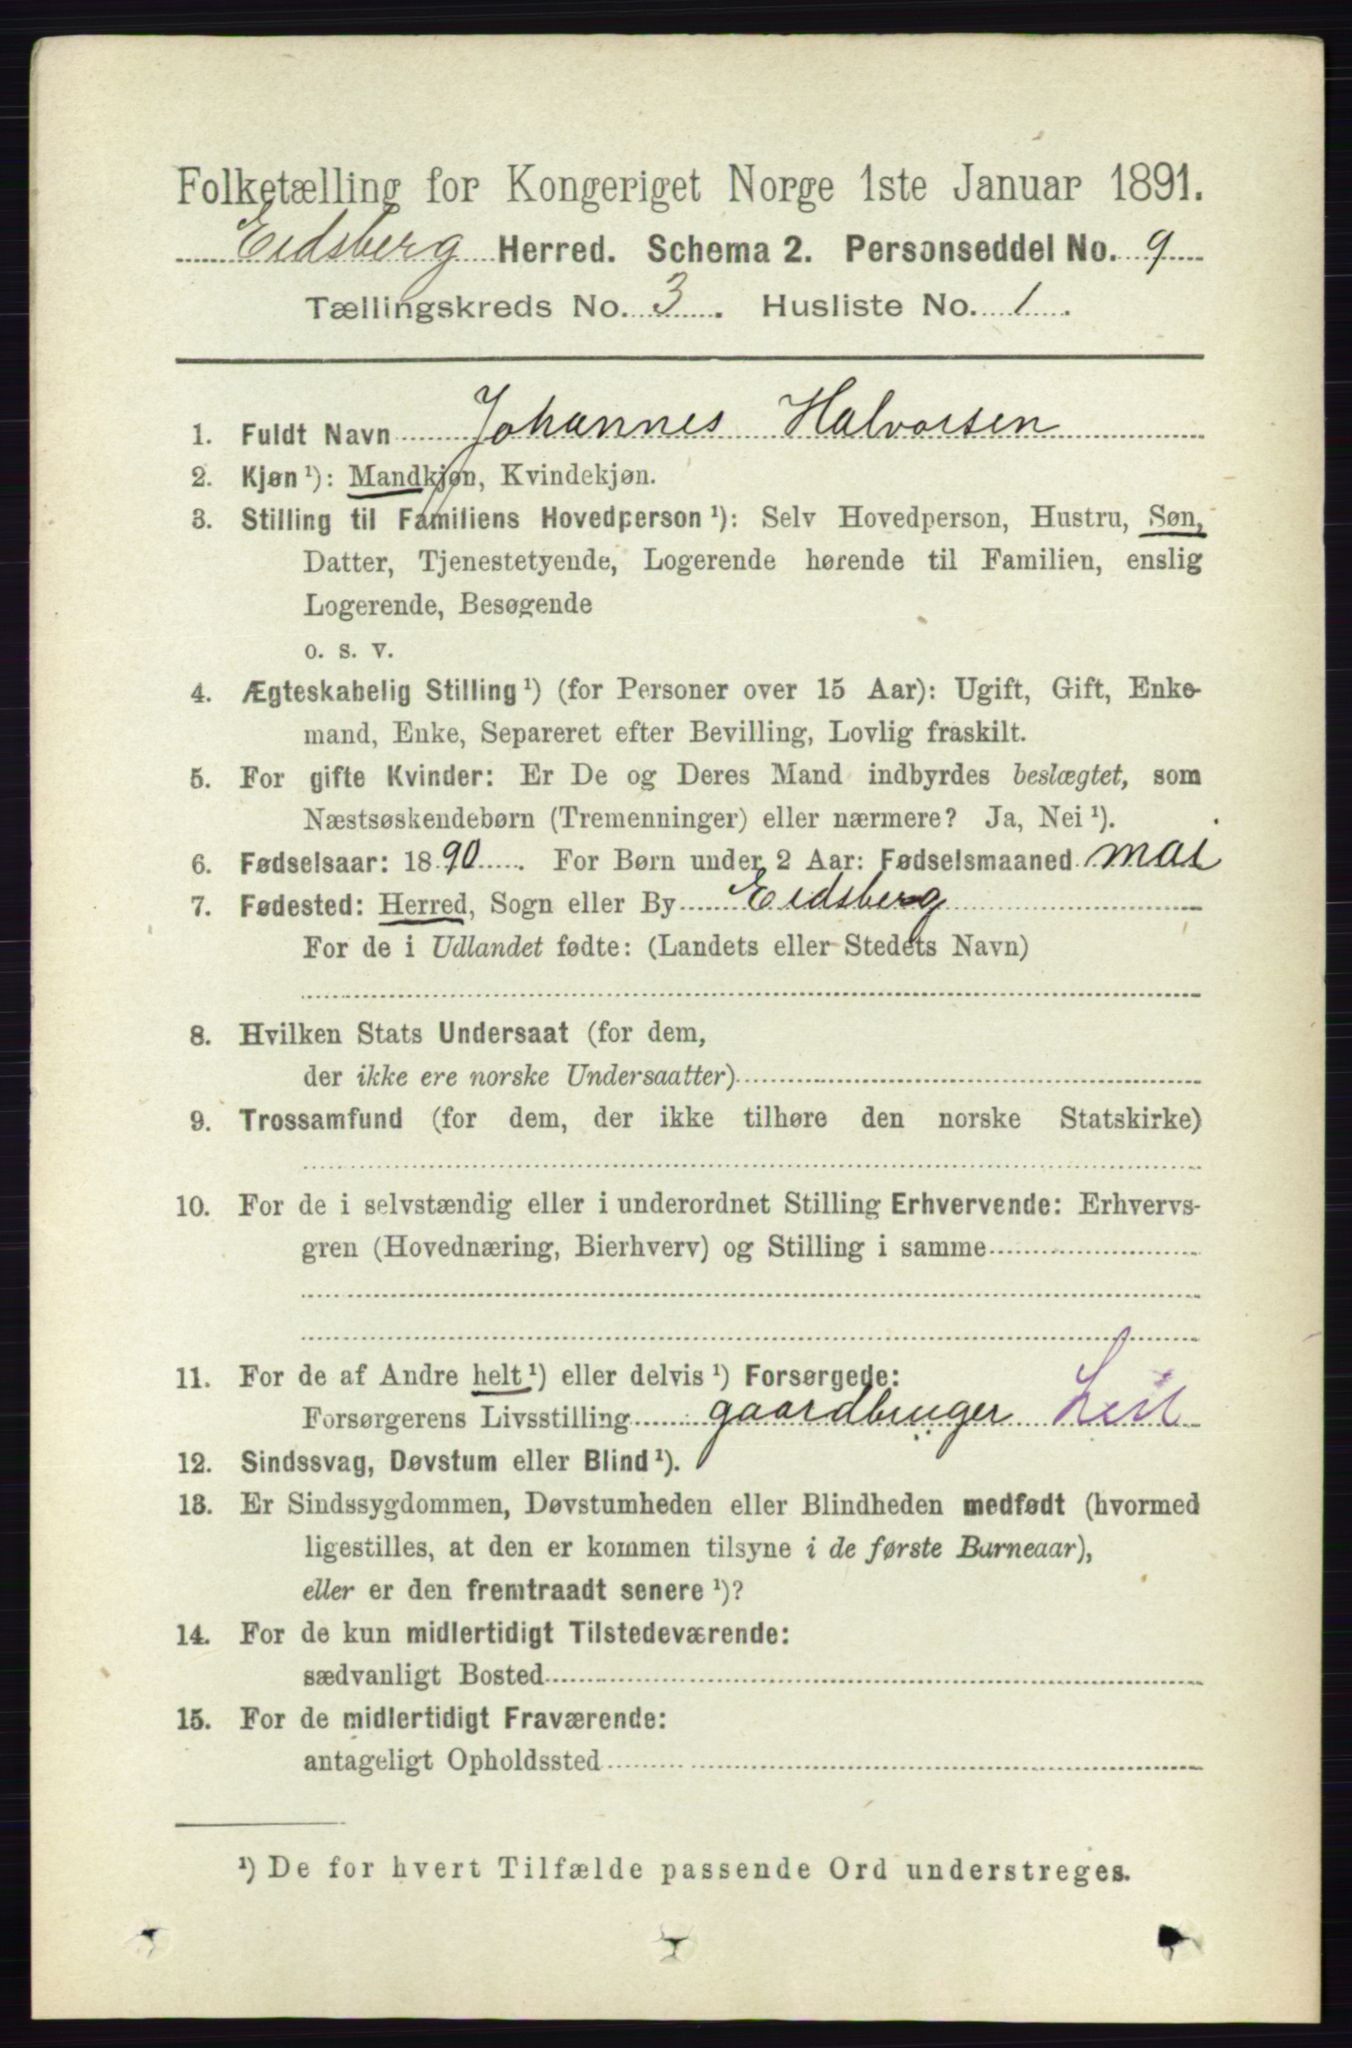 Folketælling for Kongeriget Norge 1ste Januar 1891.
Eidsberg Herred. Schema 2. Personseddel No. 9
Tællingskreds No. 3. Husliste No. 1.
1. Fuldt Navn Johannes Halvorsen
2. Kjøn ¹): Mandkjøn, Kvindekjøn.
3. Stilling til Familiens Hovedperson ¹): Selv Hovedperson, Hustru, Søn,
Datter, Tjenestetyende, Logerende hørende til Familien, enslig
Logerende, Besøgende
o. s. v.
4. Ægteskabelig Stilling ¹) (for Personer over 15 Aar): Ugift, Gift, Enke-
mand, Enke, Separeret efter Bevilling, Lovlig fraskilt.
5. For gifte Kvinder: Er De og Deres Mand indbyrdes beslægtet, som
Næstsøskendebørn (Tremenninger) eller nærmere? Ja, Nei ¹).
6. Fødselsaar: 1890. For Børn under 2 Aar: Fødselsmaaned mai
7. Fødested: Herred, Sogn eller By Eidsberg
For de i Udlandet fødte: (Landets eller Stedets Navn)
8. Hvilken Stats Undersaat (for dem,
der ikke ere norske Undersaatter)
9. Trossamfund (for dem, der ikke tilhøre den norske Statskirke)
10. For de i selvstændig eller i underordnet Stilling Erhvervende: Erhvervs-
gren (Hovednæring, Bierhverv) og Stilling i samme
11. For de af Andre helt ¹) eller delvis ¹) Forsørgede:
Forsørgerens Livsstilling gaardbruger
12. Sindssvag, Døvstum eller Blind ¹).
13. Er Sindssygdommen, Døvstumheden eller Blindheden medfødt (hvormed
ligestilles, at den er kommen tilsyne i de første Barneaar),
eller er den fremtraadt senere ¹)?
14. For de kun midlertidigt Tilstedeværende:
sædvanligt Bosted
15. For de midlertidigt Fraværende:
antageligt Opholdssted
¹) De for hvert Tilfælde passende Ord understreges.